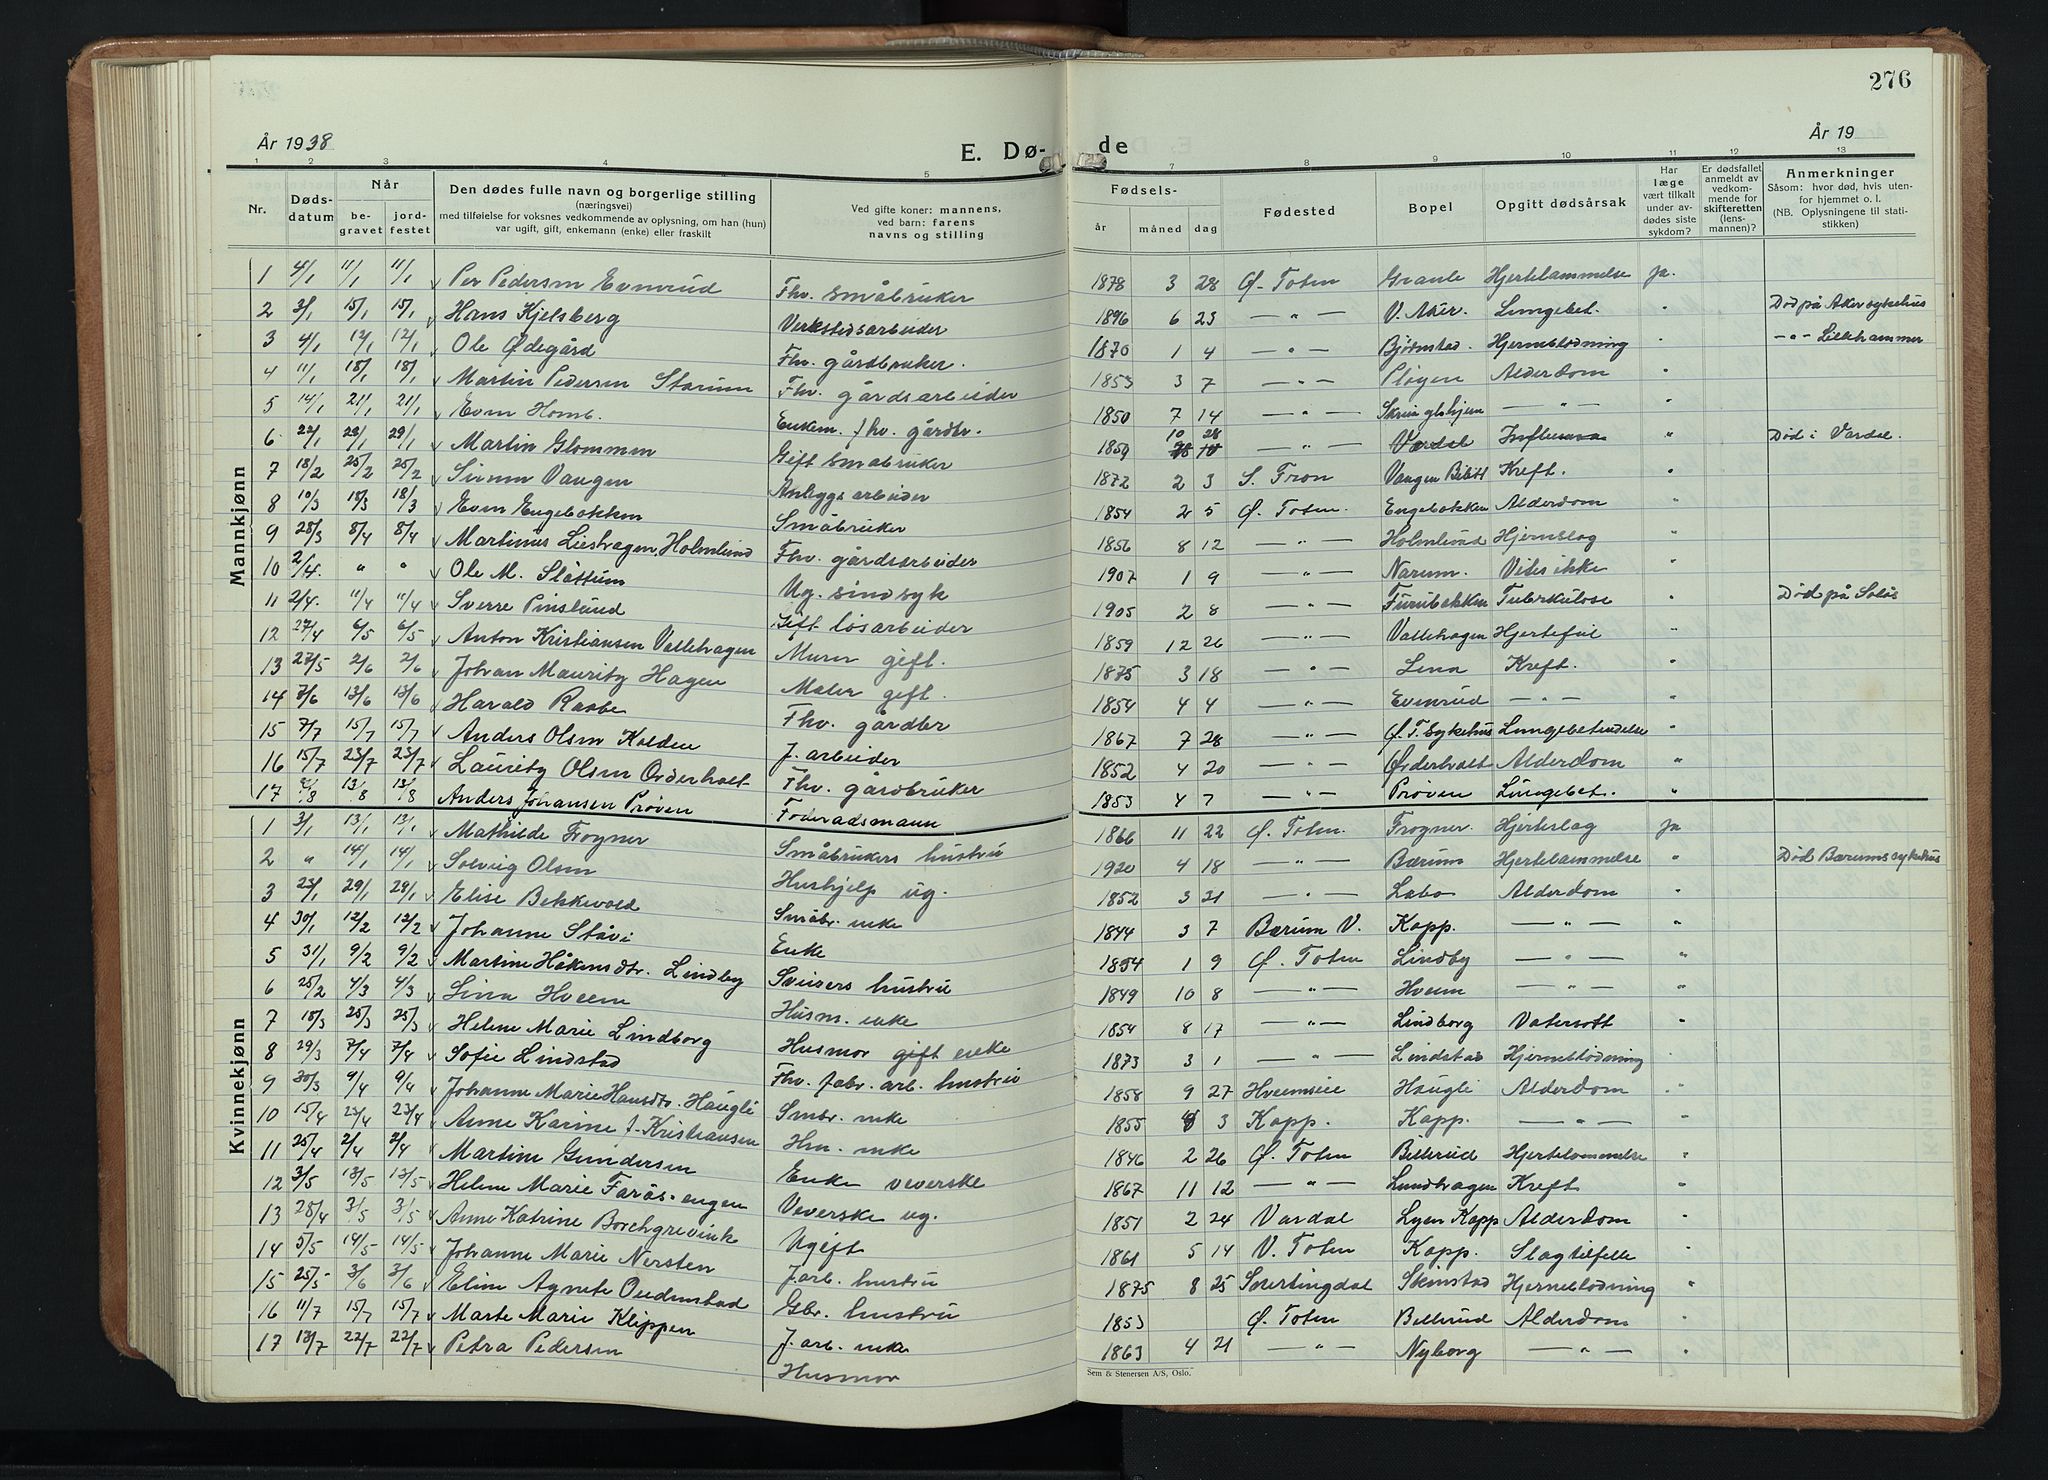 276
År 1938
E. Dø-
de
År 19
1 2 3 4 5 7 8 9 10 11 12 13
Nr.
Døds-
datum
Når
be-
gravet
jord-
festet
Den dødes fulle navn og borgerlige stilling
(næringsvei)
med tilføielse for voksnes vedkommende av oplysning, om han (hun)
var ugift, gift, enkemann (enke) eller fraskilt
Ved gifte koner: mannens,
ved barn: farens
navns og stilling
Fødsels-
år måned dag
Fødested
Bopel
Opgitt dødsårsak
Har
læge
vært tilkalt
under av-
dødes siste
sykdom?
Er dødsfallet
anmeldt av
vedkom-
mende for
skifteretten
(lens-
mannen)?
Anmerkninger
Såsom: hvor død, hvis uten-
for hjemmet o. l.
(NB. Oplysningene til stati-
stikken)
Mannkjønn
1 4/1 11/1 11/1 Per Pedersen Evenrud Fhv. småbruker 1878 3 28 Ø. Toten Hjertelammelse Ja.
2 3/1 15/1 15/1 Hans Kjelsberg Verkstedsarbeider 1896 6 23 — " — V. Aker. Lungebet. " Død på Aker sykehus
3 4/1 12/1 12/1 Ole Ødegård Fhv. gårdbruker. 1870 1 4 — " — Bjørnstad. Hjerneblødning " — " — Lillehammer
4 11/1 18/1 18/1 Martin Pedersen Starum Fhv. gårdsarbeider 1853 3 7 — " — Pløyen Alderdom "
5 14/1 21/1 21/1 Even Homb. Enkem. fhv. gårdbr. 1850 7 14 — " — — " — "
6 22/1 29/1 29/1 Martin Glommen Gift småbruker 1859 10 28 — " — Vardal Influensa " Død i Vardal.
7 18/2 25/2 25/2 Simen Vangen Anleggsarbeider 1872 2 3 S. Fron Vangen Kreft. "
8 10/3 18/3 18/3 Even Engebakken Småbruker 1854 2 5 Ø. Toten. Engebakken Alderdom "
9 28/3 8/4 8/4 Martinus Lieshagen, Holmlund Fhv. gårdsarbeider 1856 8 12 — " — Holmlund Hjerneslag "
10 2/4. " " Ole M. Slåttum Ug. sindsyk 1907 1 9 — " — Narum. Vites ikke "
11 2/4. 11/4 11/4 Sverre Pinslund Gift løsarbeider 1905 2 8 — " — Furubakken Tuberkulose " Død på Solås
12 27/4 6/5 6/5 Anton Kristiansen Vallehagen Murer gift. 1859 12 26 — " — Vallehagen Hjertefeil "
13 27/5 2/6 2/6 Johan Mauritz Hagen Maler gift. 1875 3 18 — " — Lena Kreft. "
14 7/6 13/6 13/6 Harald Raabe Fhv. gårdbr 1854 4 4 — " — Evenrud — " — "
15 7/7 15/7 15/7 Anders Olsen Kolden J. arbeider 1867 7 28 — " — Ø. T. Sykehus Lungebetendelse "
16 15/7 23/7 23/7 Lauritz Olsen Orderhalt Fhv. gårdbruker 1852 4 20 — " — Orderhalt Alderdom "
17 13/8 13/8 Anders Johansen Prøven Føderådsmann 1853 4 7 — " — Prøven Lungebet. "
Kvinnekjønn
1 3/1 13/1 13/1 Mathilde Frogner Småbrukers hustru 1866 11 22 Ø. Toten. Frogner. Hjerteslag Ja
2 " 14/1 14/1 Solveig Olsen Hushjelp ug. 1920 4 18 — " — Bærum Hjertelammelse " Død Bærums sykehus
3 23/1 29/1 29/1 Elise Bekkevold Småbr. enke 1852 3 21 — " — Labo Alderdom "
4 30/1 12/2 12/2 Johanne Ståvi Enke 1844 3 7 Bærum V. Kapp. — " — "
5 31/1 9/2 9/2 Martine Håkensdtr. Lindby Sveisers hustru 1854 1 9 Ø. Toten Lindby — " — "
6 25/2 4/3 4/3 Lina Hveem Husm. enke 1849 10 8 — " — Hveem — " — "
7 18/3 25/3 25/3 Helene Marie Lindborg Husmor gift enke 1854 8 17 — " — Lindborg Vatersott "
8 29/3 7/4 7/4 Sofie Lindstad Fhv. fabr. arb. hustru 1873 3 1 — " — Lindstad Hjerneblødning
9 30/3 9/4 9/4 Johanne Marie Hansdtr. Haugli Smbr. enke 1858 9 27 Hveemseie Haugli Alderdom "
10 15/4 23/4 23/4 Anne Karine J. Kristiansen Hm. enke 1855 3 Kapp. Kapp. — " — "
11 25/4 2/4 2/4 Martine Gundersen Enke veverske 1846 2 26 Ø. Toten Billerud Hjertelammelse "
12 3/5 13/5 13/5 Helene Marie Farås-engen Veverske ug. 1867 11 12 — " — Lundhagen Kreft "
13 28/4 3/5 3/5 Anne Katrine Borchgrevink Ugift 1851 2 24 Vardal Lyen Kapp Alderdom "
14 5/5 14/5 14/5 Johanne Marie Nersten J.arb. hustru 1861 5 14 V. Toten Kapp. Slagtilfelle "
15 25/5 3/6 3/6 Eline Agnete Oudenstad Gbr. hustru 1875 8 25 Snertingdal Skinstad Hjerneblødning "
16 11/7 15/7 15/7 Marte Marie Klippen J. arb. enke 1853 Ø. Toten Billerud Alderdom "
17 13/7 22/7 22/7 Petra Pedersen Husmor 1863 4 21 — " — Nyborg — " — "
Sem & Stenersen A/S, Oslo.